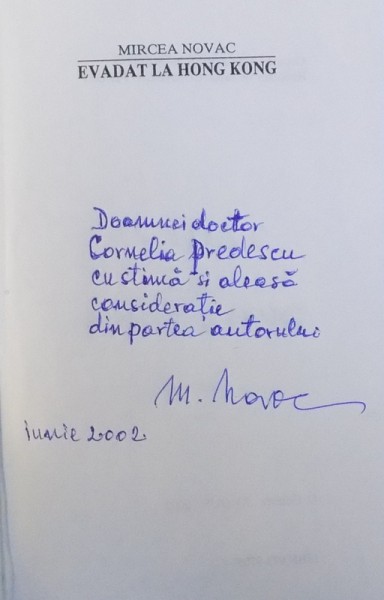 MIRCEA NOVAC
EVADAT LA HONG KONG
Doamnei doctor
Cornelia Predescu
cu stimă și aleasă
considerație
din partea autorului
M. Novac
iunie 2002